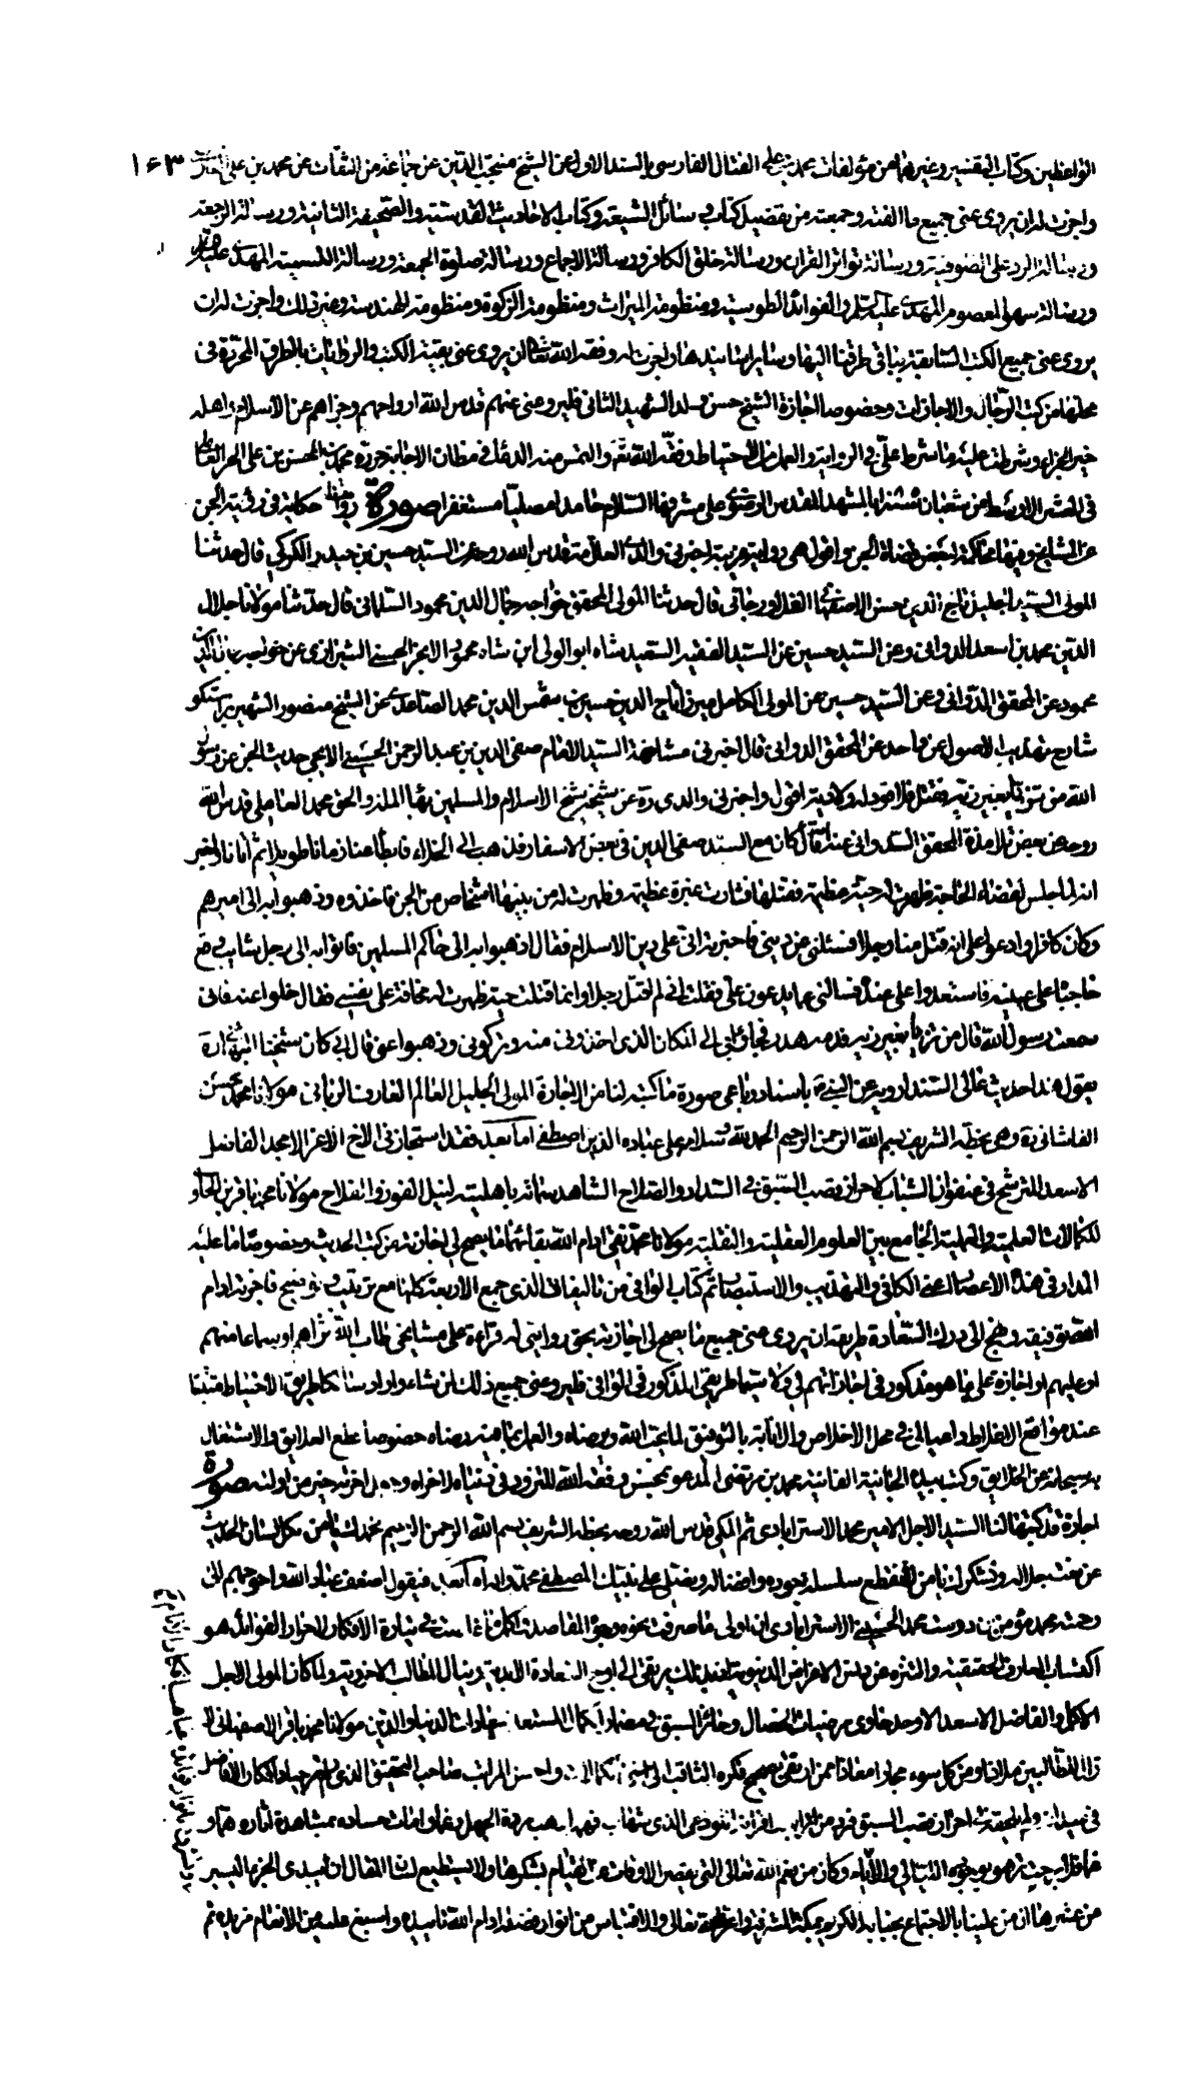 الواعظين وكتاب التفسير وغيرهما من مؤلفات محمد بن علي الفتال الفارسي بالسند الاول عن الشيخ منتجب الدين عن جماعة من الثقات عن محمد بن علي ١٤٣
واجزت له ان يروي عني جميع ما الفته وجمعته من تفصيل كتاب وسائل الشيعة وكتاب الاحاديث القدسية والصحيفة الثانية ورسالة الرجعة
ورسالة الرد على الصوفية ورسالة تواتر القران ورسالة خلق الكافر ورسالة الاجماع ورسالة صلوة الجمعة ورسالة التسمية المهدي عليه
ورسالة سهو المعصوم المهدي عليه السلم والفوائد الطوسية ومنظومة الميراث ومنظومة الزكوة ومنظومة الهندسة وغير ذلك واجزت له ان
يروي عني جميع الكتب السابقة بباقي طرقنا اليها وساير اسانيدها واجزت له وفقه الله تعالى ان يروي عني بقية الكتب والروايات بالطرق المحررة في
محلها من كتب الرجال والاجازات وخصوصا اجازة الشيخ حسن ولد الشهيد الثاني فليرو عني عنهم قدس الله ارواحهم وجزاهم عن الاسلام واهله
خير الجزاء وشرطت عليه ما شرط علي في الرواية والعمل من الاحتياط وفقه الله والتمس منه الدعاء في مظان الاجابة حرره محمد بن الحسن بن علي الحر العاملي
في العشر الاوسط من شعبان سنة بالمشهد المقدس الرضوي على مشرفها السلام حامدا مصليا مستغفرا صورة رواية حكاية في رؤية الجن
عن المشايخ وفيها محاكمة لبعض قضاة الجن واقول هي رواية غريبة اخبرني والدي العلامة قدس الله روحه عن السيد حسين بن حيدر الكركي قال حدثنا
المولى السيد الجليل تاج الدين حسن الاصفهاني الفلاورجاني قال حدثنا المولى المحقق خواجه جمال الدين محمود السلماني قال حدثنا مولانا جلال
الدين محمد بن اسعد الدواني وعن السيد حسين عن السيد الفقيد السعيد شاه ابو الولي ابن شاه محمود الحسيني الشيرازي عن خواجه جمال الدين
محمود عن المحقق الدواني وعن السيد حسين عن المولى الكامل ميرزا تاج الدين حسين بن شمس الدين محمد الصاعدي عن الشيخ منصور الشهير براستكو
شارح تهذيب الاصول عن واحد عن المحقق الدواني قال اخبرني مشافهة السيد الامام صفي الدين بن عبد الرحمن الحسيني الايجي حديث الجن عن رسول
الله من تزيا بغير زيه فقتل فلا قود له ولا دية اقول واخبرني والدي ره عن شيخه شيخ الاسلام والمسلمين بهاء الملة والحق محمد العاملي قدس الله
روحه عن بعض تلامذة المحقق الدواني عنه قال كان مع السيد صفي الدين في بعض الاسفار فذهب الى الخلاء فابطأ عنا زمانا طويلا ثم اتانا واخبر
انه لما جلس لقضاء الحاجة ظهرت له حية عظيمة فقتلها فثارت غبرة عظيمة وظهرت له من بينها اشخاص من الجن فاخذوه وذهبوا به الى اميرهم
وكان كافرا وادعوا على انه قتل منا رجلا فسئلني عن ديني فاخبرته اني على دين الاسلام فقال اذهبوا به الى حاكم المسلمين فاتوا به الى رجل شايب
حاجباه على عينيه فاستعدوا على عنده فسالني عما يدعون علي فقلت اني لم اقتل رجلا وانما قتلت حية ظهرت لي مخافة على نفسي فقال خلوا عنه فاني
سمعت رسول الله قال من تزيا بغير زيه فدمه هدر فجاؤا بي الى المكان الذي اخذوني منه وتركوني وذهبوا عني قال لي كان شيخنا البهائي ره
يقول هذا حديث عالي السند ارويه عن النبي باسناد رباعي صورة ما كتبه لنا من الاجازة المولى الجليل العالم العارف الرباني مولانا محمد محسن
القاشاني ره وهي بخطه الشريف بسم الله الرحمن الرحيم الحمد لله وسلام على عباده الذين اصطفى اما بعد فقد استجازني الاخ الاعز الامجد الفاضل
الاسعد المترشح في عنفوان الشباب لاحراز قصب السبق في السداد والصلاح الشاهد سماته باهليته لنيل الفوز والفلاح مولانا محمد باقر بن الحاوي
للكمالات العلمية والعملية الجامع بين العلوم العقلية والنقلية مولانا محمد تقي ادام الله بقائهما ما يصح لي اجازته من كتب الحديث وخصوصا ما عليه
المدار في هذه الاعصار اعني الكافي والتهذيب والاستبصار ثم كتاب الوافي من تاليفاتي الذي جمع الاربعة كلها مع ترتيب وتوضيح فاجزته ادام
الله توفيقه ونهج الى درك السعادة طريقه ان يروي عني جميع ما يصح لي اجازته بحق روايتي له قراءة على مشايخي طاب الله ثراهم او سماعا منهم
او عليهم او اجازة على ما هو مذكور في اجازاتهم لي ولا سيما طريقي المذكور في الوافي فليرو عني جميع ذلك لمن شاء واراد سالكا طريق الاحتياط متثبتا
عند مواقع الاغلاط واعيا لي في محل الاخلاص والانابة بالتوفيق لما يحب الله ويرضاه والعمل بما فيه رضاه خصوصا قطع العلايق والاشتغال
به سبحانه عن الخلايق وكتب بيده الجانية الفانية محمد بن مرتضى المدعو بمحسن وفقه الله للتزود في دنياه لاخراه وجعل اخرته خير من اولاه صورة
اجازة قد كتبها لنا السيد الاجل الامير محمد الاسترابادي ثم المكي قدس الله روحه بخطه الشريف بسم الله الرحمن الرحيم نحمدك يا من كل لسان الحديث
عن نعت جلاله ونشكرك يا من لا تنقطع سلسلة جوده وافضاله ونصلي على نبيك المصطفى محمد وآله اما بعد فيقول اضعف عباد الله واحوجهم الى
رحمته محمد مؤمن بن دوست محمد الحسيني الاسترابادي ان اولى ما صرفت نحوه وجوه المقاصد لاحراز الفوائد هو
اكتساب المعارف الحقيقية والتنزه عن دنس الاعراض الدنيوية اذ بذلك يرتقي الى اوج السعادة الابدية وينال المطالب الاخروية ولما كان المولى الاجل
الاكمل والفاضل الاسعد الاوحد حاوي مرضيات الخصال وحائز السبق في مضمار الكمال سعادات الدنيا والدين مولانا محمد باقر الاصفهاني لا
زال للطالبين ملاذا ومن كل سوء مجارا معاذا ممن ارتقى بصحيح فكره الثاقب الى واحسن المراتب صاحب التحقيق الذي
في ميدانه احراز قصب السبق فريد من اقرانه اللوذعي الذي
وكان من نعم الله تعالى التي يقصر الاوقات عن القيام بشكرها ولا يستطيع لسان المقال ان يبدي الجزء اليسير
من عشرها ان من علينا بالاجتماع بجنابه الكريم بمكة الشريفة زادها الله تعالى والاقتباس من انوار فضله ادام الله تاييده واسبغ عليه من الانعام مزيده ثم